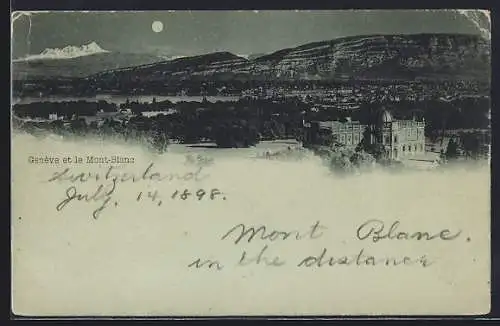 Genève et le Mont-Blanc
Switzerland
July. 14, 1898.
Mont Blanc.
in the distance